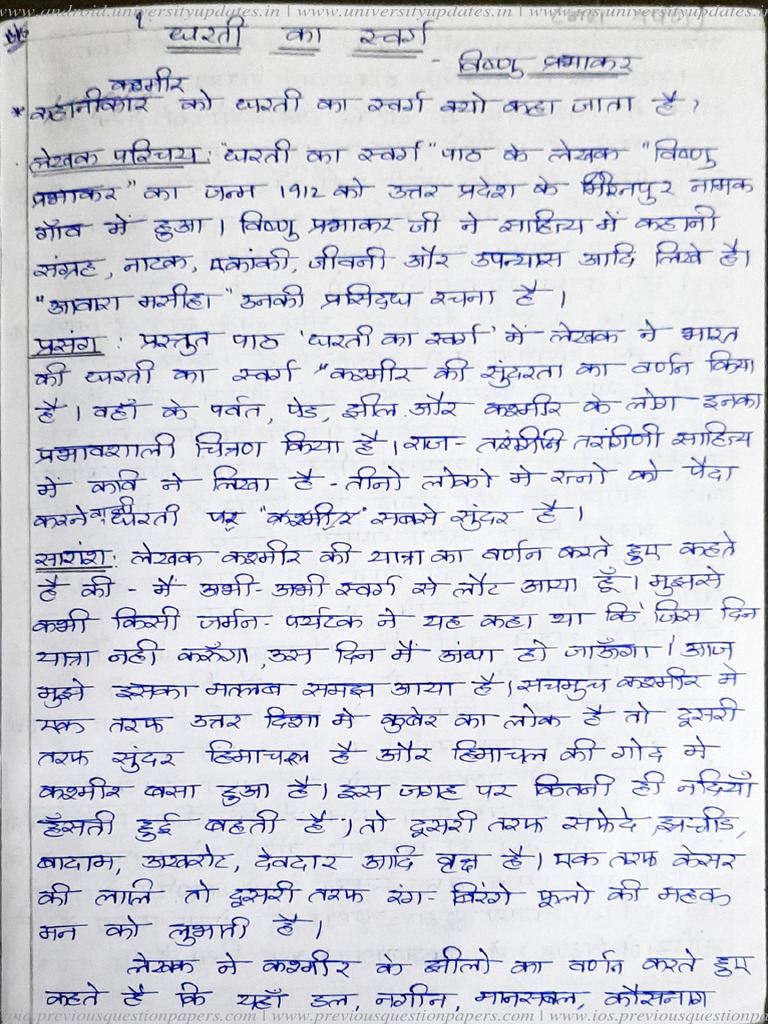 www.android.universityupdates.in | www.universityupdates.in | www.ios.universityupdates.in
धरती का स्वर्ग
- विष्णु प्रभाकर
कश्मीर
* कहानीकार को धरती का स्वर्ग क्यो कहा जाता है?
लेखक परिचय: "धरती का स्वर्ग" पाठ के लेखक "विष्णु
प्रभाकर" का जन्म 1912 को उत्तर प्रदेश के मिरनपुर नामक
गाँव में हुआ। विष्णु प्रभाकर जी ने साहित्य में कहानी
संग्रह, नाटक, एकांकी, जीवनी और उपन्यास आदि लिखे है।
"आवारा मसीहा" उनकी प्रसिद्ध रचना है।
प्रसंग: प्रस्तुत पाठ 'धरती का स्वर्ग' में लेखक ने भारत
की धरती का स्वर्ग "कश्मीर की सुंदरता का वर्णन किया
है। वहाँ के पर्वत, पेड, झील और कश्मीर के लोग इनका
प्रभावशाली चित्रण किया है। राज- तरंगिनि तरंगिणी साहित्य
में कवि ने लिखा है - तीनो लोको मे रत्नो को पैदा
करने वाली धरती पर "कश्मीर" सबसे सुंदर है।
सारांश: लेखक कश्मीर की यात्रा का वर्णन करते हुए कहते
है की - मैं अभी-अभी स्वर्ग से लौट आया हूँ। मुझसे
कभी किसी जर्मन- पर्यटक ने यह कहा था कि 'जिस दिन
यात्रा नही करूँगा, उस दिन मैं अंधा हो जाऊँगा।' आज
मुझे इसका मतलब समझ आया है। सचमुच कश्मीर मे
एक तरफ उत्तर दिशा मे कुबेर का लोक है तो दूसरी
तरफ सुंदर हिमाचल है और हिमाचल की गोद मे
कश्मीर बसा हुआ है। इस जगह पर कितनी ही नदियाँ
हँसती हुई बहती है। तो दूसरी तरफ सफेदे,
बादाम, अखरोट, देवदार आदि वृक्ष है। एक तरफ केसर
की लाली तो दुसरी तरफ रंग- बिरंगे फूलो की महक
मन को लुभाती है।
लेखक ने कश्मीर के झीलो का वर्णन करते हुए
कहते है कि यहाँ डल, नगीन, मानसबल, कौसनाग
www.ios.previousquestionpapers.com | www.previousquestionpapers.com | www.ios.previousquestionpapers.com